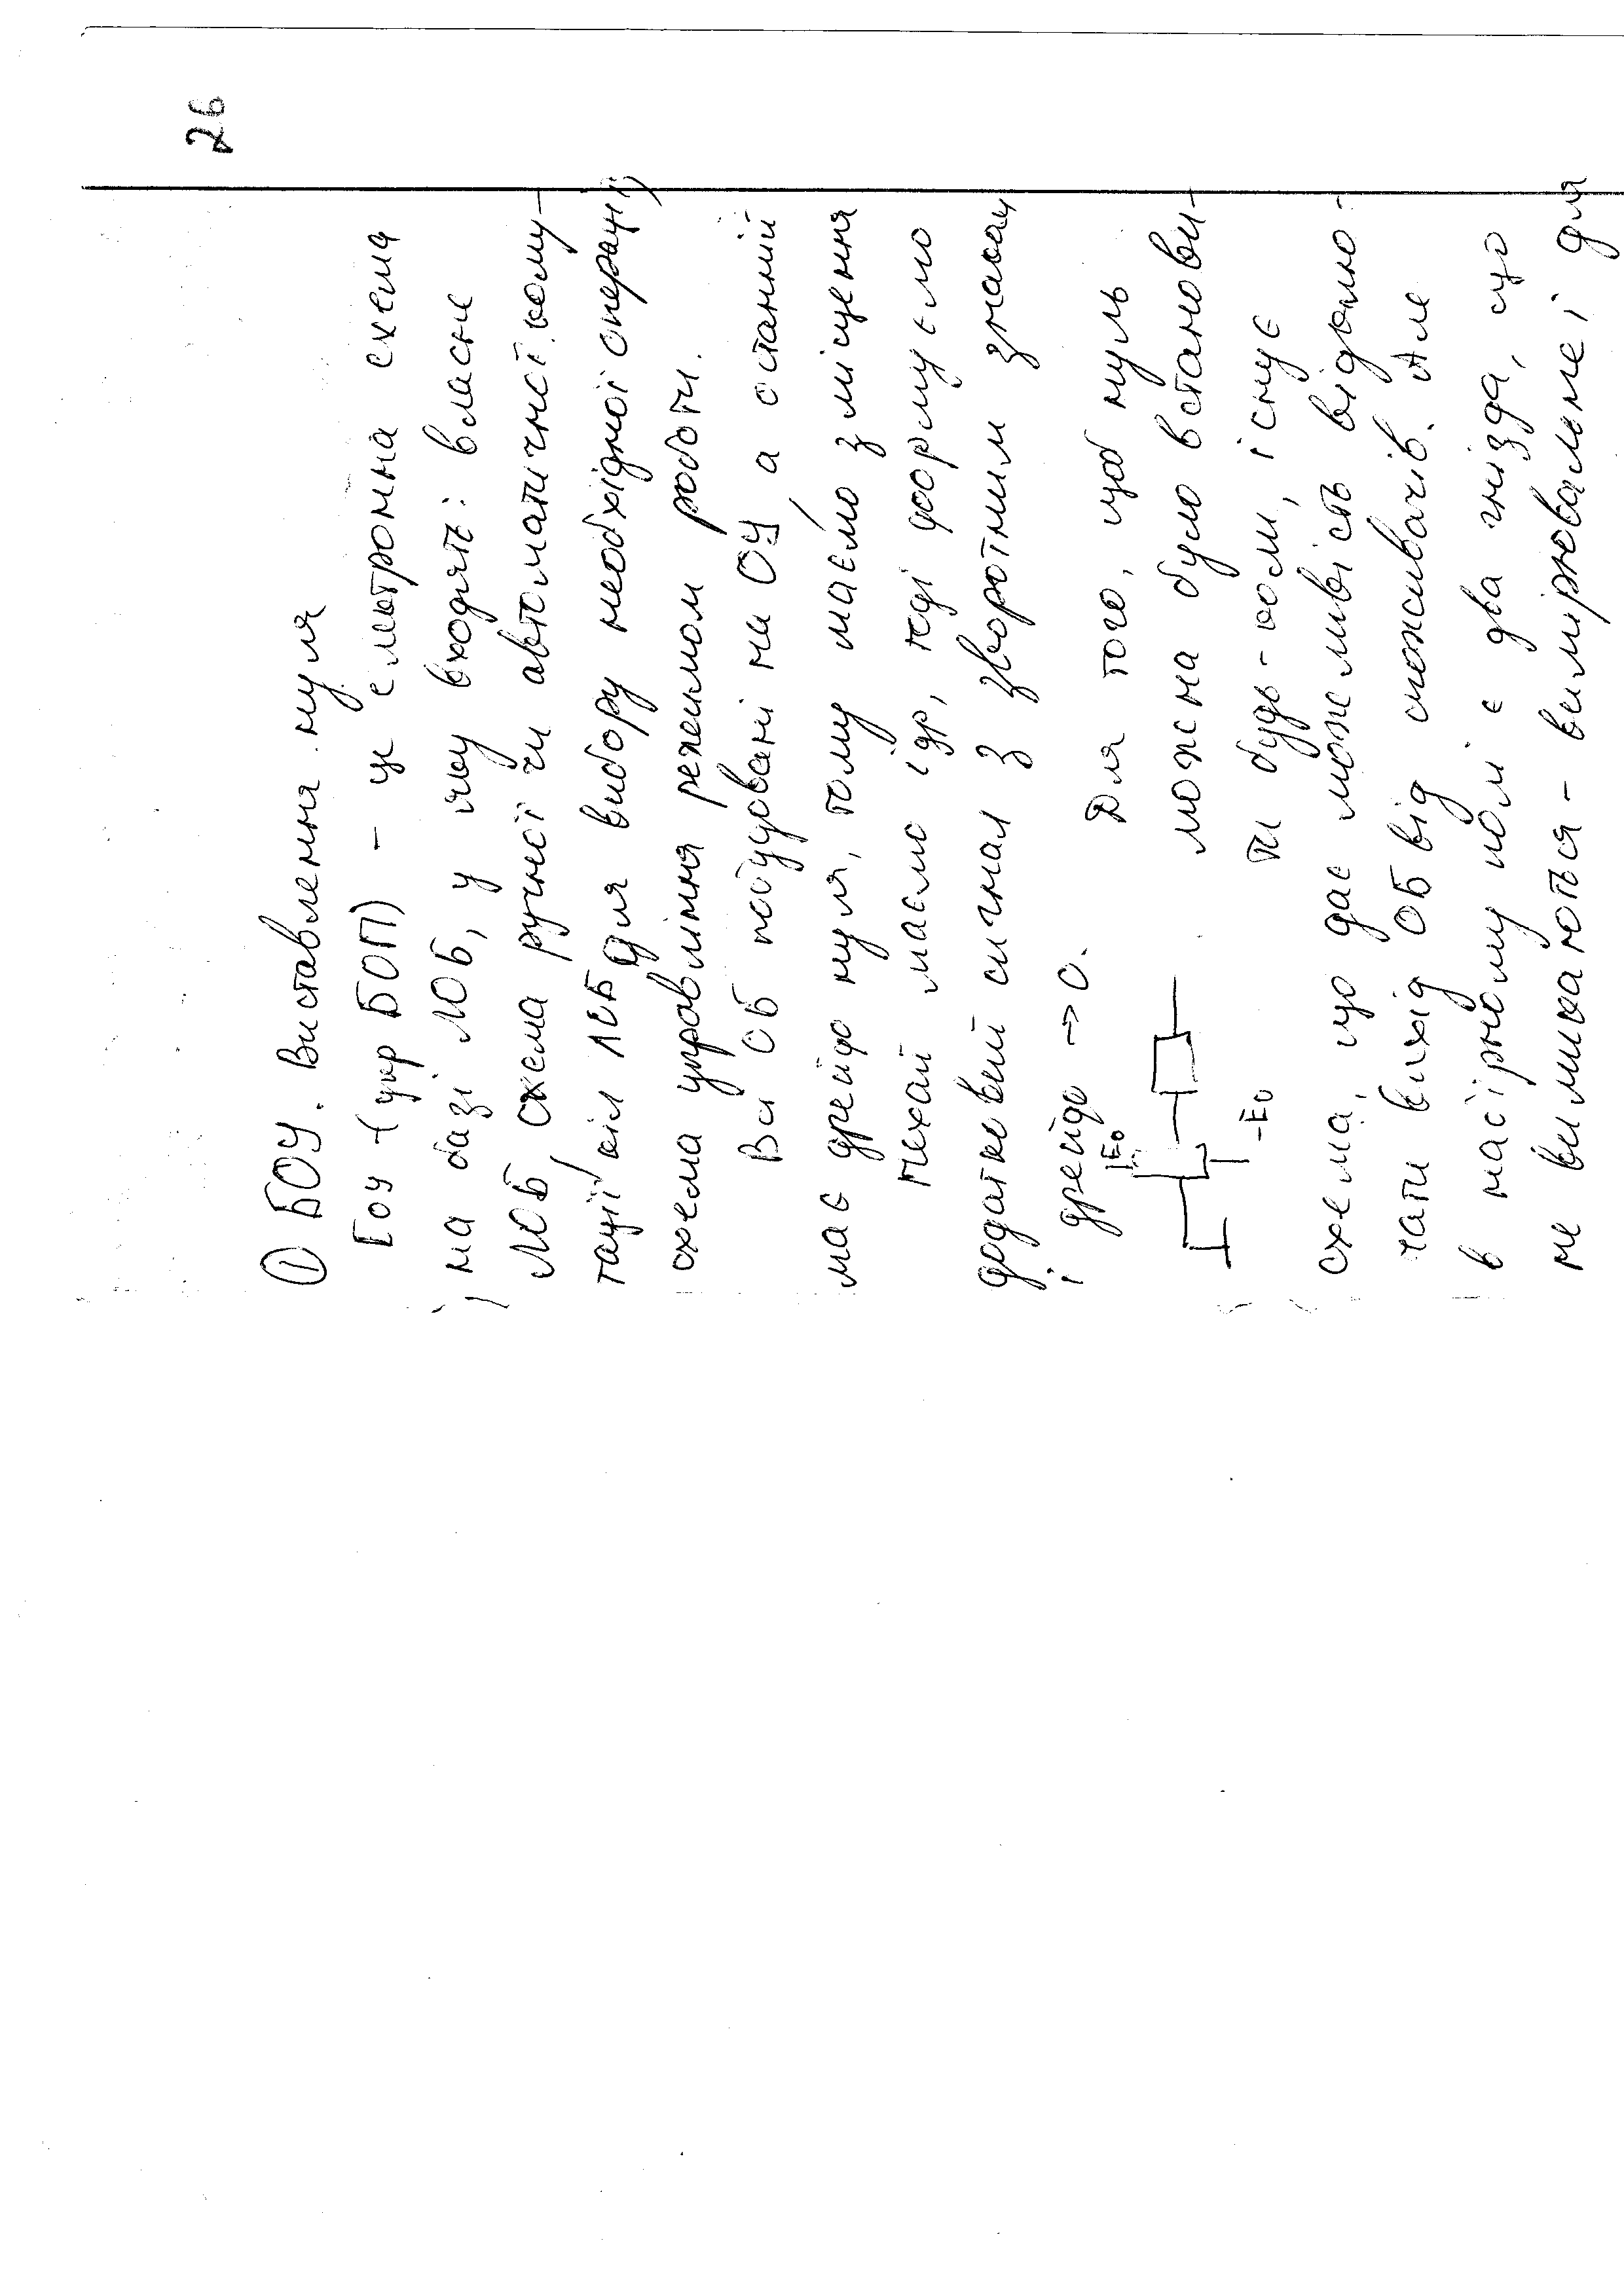 26
① БОУ. Виставлення нуля
БОУ (укр БОП) – це електронна схема
на базі ЛОБ, у яку входять: власне
ЛОБ, схема ручної чи автоматичної кому-
тації кіл ЛОБ для вибору необхідної операції,
схема управління режимом роботи.
Всі ОБ побудовані на ОУ, а останній
має дрейф нуля, тому маємо зміщення
Нехай маємо iдр, тоді формуємо
додатковий сигнал з зворотним знаком
і дрейф → 0.
Для того, щоб нуль
можна було встанови-
ти будь-коли, існує
E0
-E0
схема, що дає можливість відклю-
чати вихід ОБ від споживачів. Але
в набірному полі є два гнізда, що
не вимикаються – вимірювальне і для